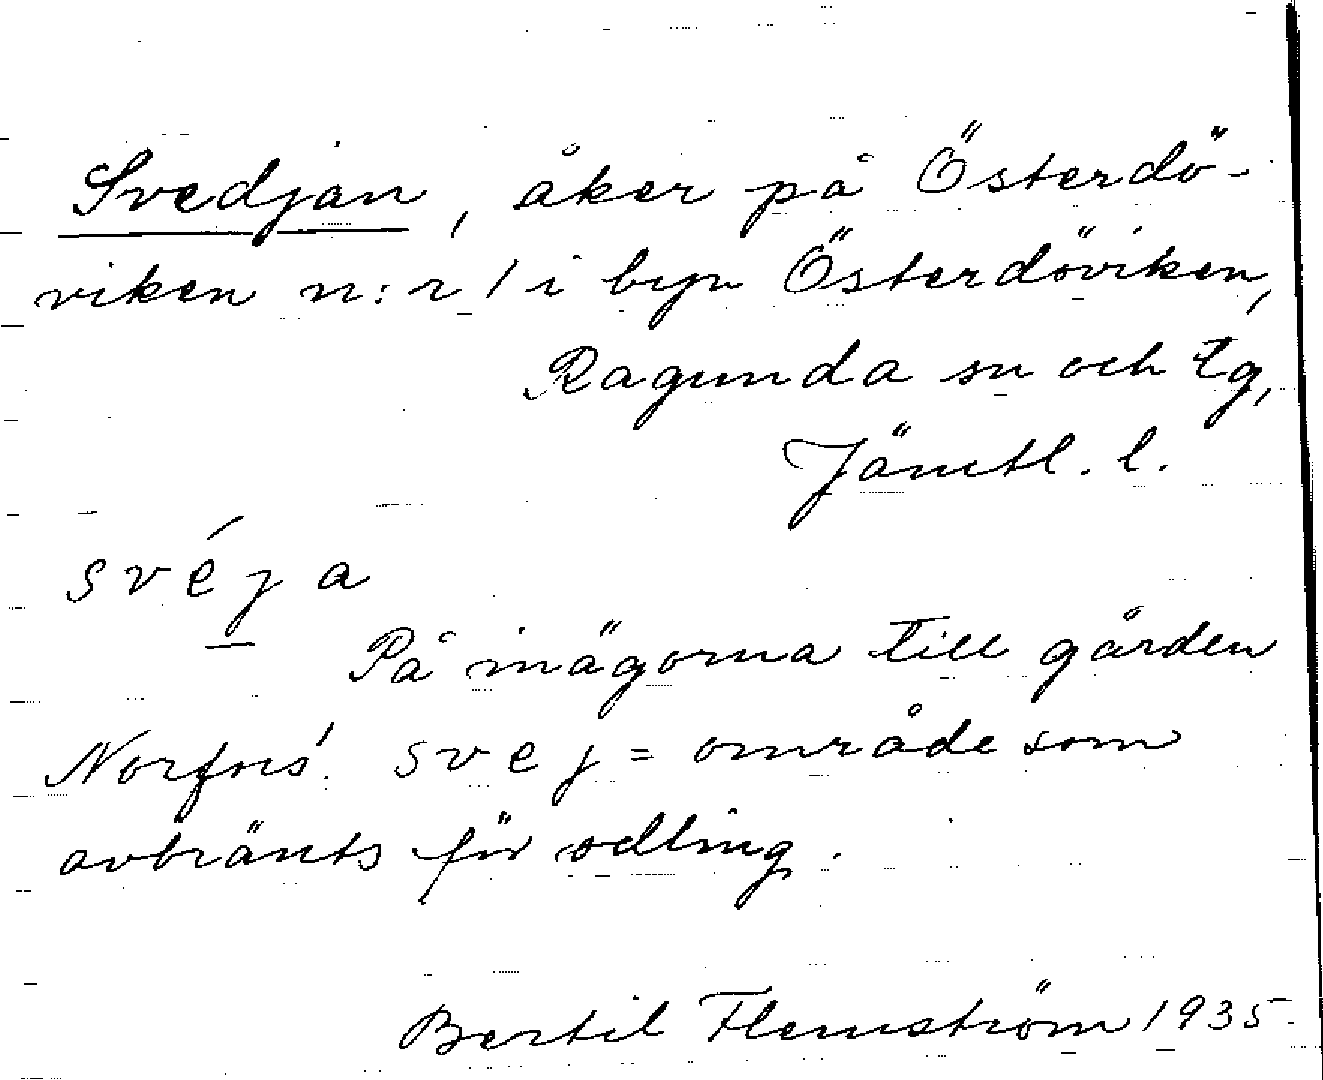 Svedjan, åker på Österdö-
viken n:r 1 i byn Österdöviken,
Ragunda sn och tg,
Jämtl. l.
svéja
På inägorna till gården
Norfors. svej = område som
avbränts för odling.
Bertil Flemström 1935